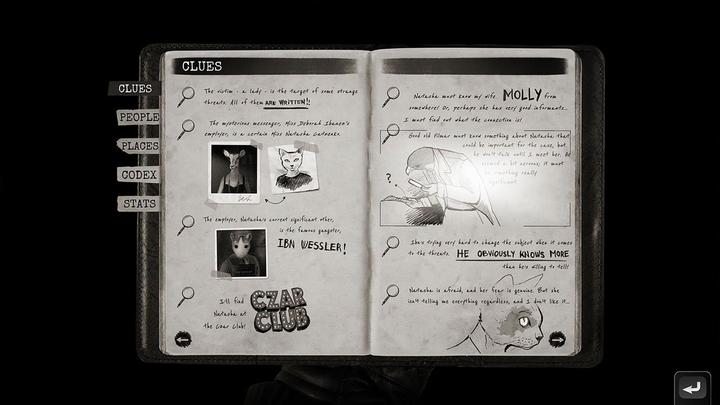 CLUES
CLUES
PEOPLE
PLACES
CODEX
STATS
The victim - a lady - is the target of some strange
threats. All of them ARE WRITTEN!!
The mysterious messenger, Miss Deborah Ibanen's
employer, is a certain Miss Natasha
The employer, Natasha's current significant other,
is the famous gangster,
IBN WESSLER!
I'll find
Natasha at
the Czar Club!
CZAR
CLUB
Natasha must know my wife MOLLY from
somewhere! Or, perhaps she has very good informants...
I must find out what the connection is!
Good old Filmar must know something about Natasha that
could be important for the case, but
he won't talk until I meet her. He
seemed a bit nervous; it must
be something really
significant.
?
Ibn's trying very hard to change the subject when it comes
to the threats. HE OBVIOUSLY KNOWS MORE
than he's willing to tell!
Natasha is afraid, and her fear is genuine. But she
isn't telling me everything regardless, and I don't like it...